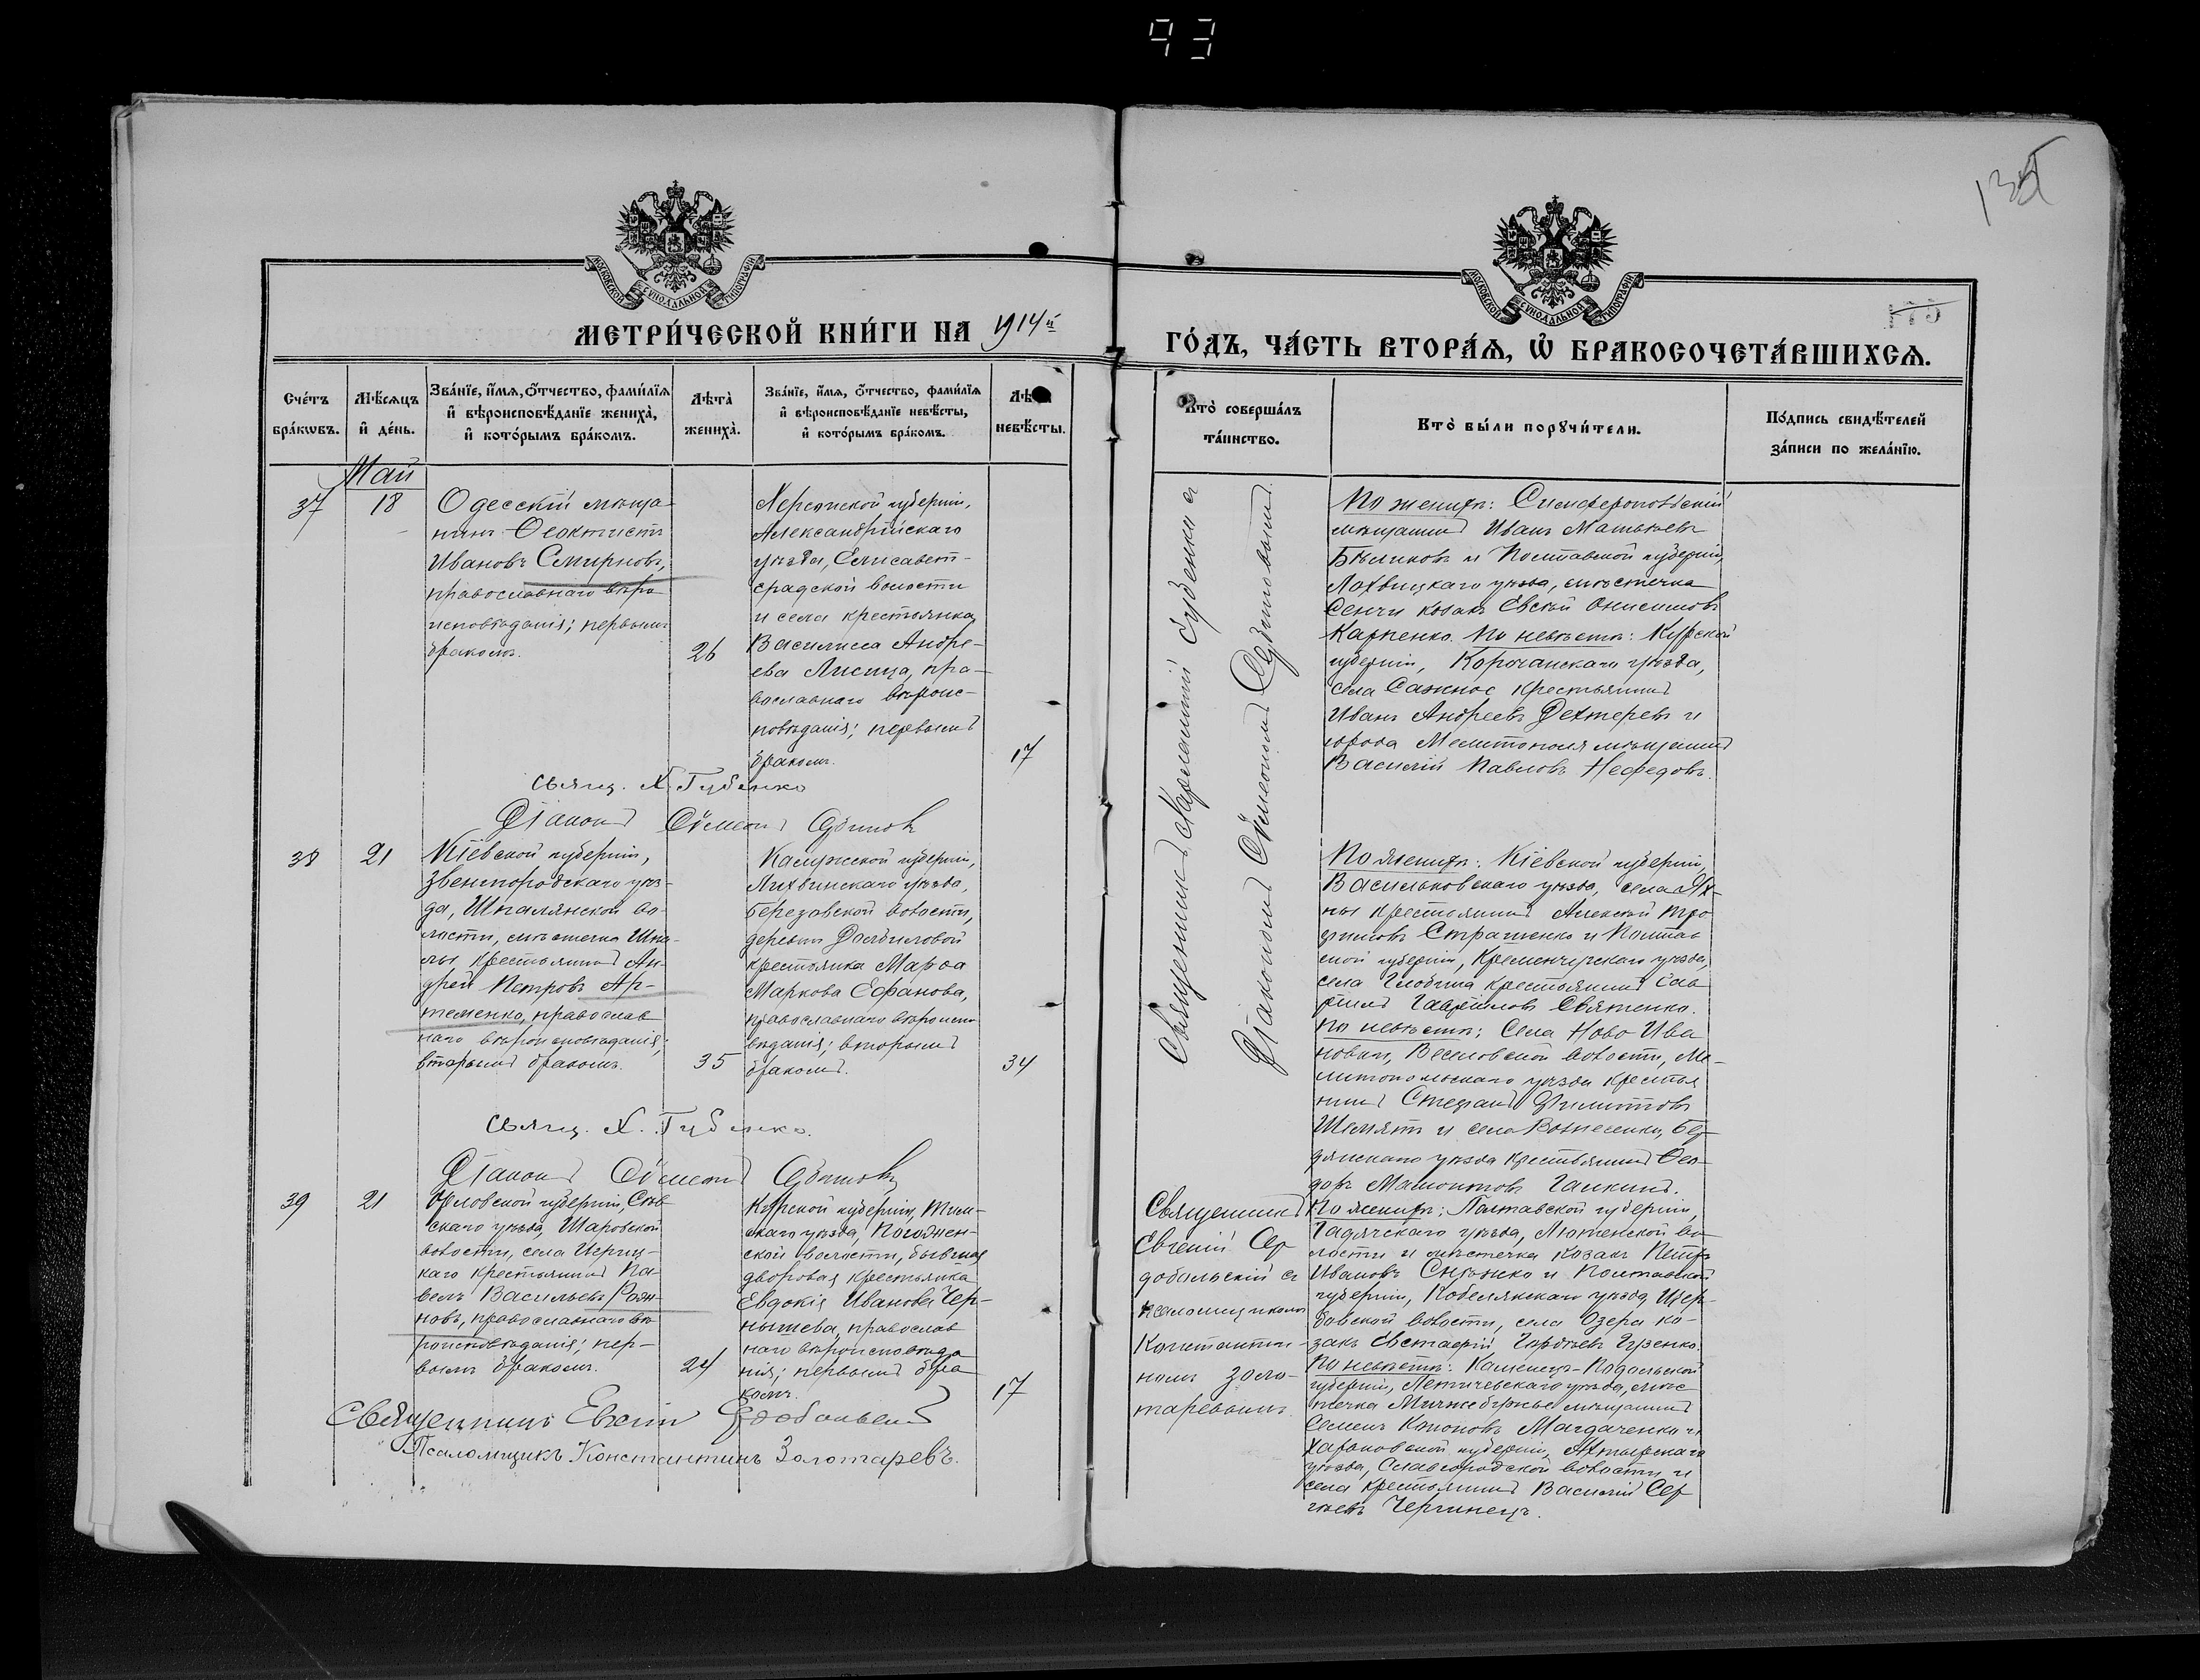 93
135
175
МОСКОВСКОЙ СѴНОДАЛЬНОЙ ТИПОГРАФІИ
МОСКОВСКОЙ СѴНОДАЛЬНОЙ ТИПОГРАФІИ
МЕТРИ́ЧЕСКОЙ КНИ́ГИ НА 1914й
ГО́ДЪ, ЧА́СТЬ ВТОРА́Ѧ, Ѡ҆ БРАКОСОЧЕТА́ВШИХСѦ.
Сче́тъ бра́кѡвъ.
Мѣ́сѧцъ и҆ де́нь.
Зва́нїе, и҆́мѧ, ѻ҆́тчество, фами́лїѧ
и҆ вѣроисповѣ́данїе жениха̀,
и҆ кото́рымъ бра́комъ.
Лѣта̀ жениха̀.
Зва́нїе, и҆́мѧ, ѻ҆́тчество, фами́лїѧ
и҆ вѣроисповѣ́данїе невѣ́сты,
и҆ кото́рымъ бра́комъ.
Лѣта̀ невѣ́сты.
Кто̀ соверша́лъ
та́инство.
Кто̀ бы́ли порꙋчи́тели.
По́дпись свидѣ́телей
за́писи по жела́нїю.
Май
37
18
Одесскій мѣща-
нинъ Ѳеоктистъ
Ивановъ Смирновъ,
православнаго вѣро
исповѣданія; первымъ
бракомъ.
26
Херсонской губерніи,
Александрійскаго
уѣзда, Елисавет-
градской волости
и села крестьянка
Василисса Андре-
ева Лисица, пра-
вославнаго вѣроис-
повѣданія; первымъ
бракомъ.
17
Священникъ Харлампій Губенко съ
Діакономъ Сѵмеономъ
По женихѣ: Симферопольскій
мѣщанинъ Иванъ Матвѣевъ
Бѣликовъ и Полтавской губерніи,
Лохвицкаго уѣзда, мѣстечка
Сенчи козакъ Евсѣй Онисимовъ
Карпенко. По невѣстѣ: Курской
губерніи, Корочанскаго уѣзда,
села Сажное крестьянинъ
Иванъ Андреевъ Дехтеревъ и
города Мелитополя мѣщанинъ
Василій Павловъ Нефедовъ.
Свящ. Х. Губенко
Діаконъ Сѵмеонъ
38
21
Кіевской губерніи,
Звенигородскаго уѣз-
да, Шполянской во-
лости, мѣстечка Шпо-
лы крестьянинъ Ан-
дрей Петровъ Ар-
теменко, православ
наго вѣроисповѣданія;
вторымъ бракомъ.
35
Калужской губерніи,
Лихвинскаго уѣзда,
Березовской волости,
деревни
крестьянка Марѳа
Маркова Ефанова,
православнаго вѣроиспо
вѣданія; вторымъ
бракомъ.
34
По женихѣ: Кіевской губерніи,
Васильковскаго уѣзда, села Ях-
ны крестьянинъ Алексѣй Тро
фимовъ Страшенко и Полтав
ской губерніи, Кременчугскаго уѣзда,
села Глобина крестьянинъ Гав
ріилъ Гавріиловъ Святенко.
По невѣстѣ: Села Ново Ива
новки, Веселовской волости, Ме-
литопольскаго уѣзда крестья
нинъ Стефанъ Филиповъ
Шемятъ и села Вознесенки, Бер
дянскаго уѣзда крестьянинъ Ѳео-
доръ Мамонтовъ Галкинъ.
Свящ. Х. Губенко.
Діаконъ Сѵмеонъ
39
21
Орловской губерніи, Сѣв
скаго уѣзда, Шаровской
волости, села
крестьянинъ Па-
велъ Васильевъ Роян-
новъ, православнаго вѣ
роисповѣданія; пер-
вымъ бракомъ.
24
Курской губерніи, Тим-
скаго уѣзда, Погожен-
ской волости, бывшая
дворовая крестьянка
Евдокія Иванова Чер-
нышева, православ
наго вѣроисповѣда
нія; первымъ бра
комъ.
17
Священникъ
Евгеній Сер
добольскій съ
псаломщикомъ
Константи-
номъ Золо-
таревымъ.
По женихѣ: Полтавской губерніи,
Гадячскаго уѣзда, Лютенской во
лости и мѣстечка козакъ Петръ
Ивановъ и Полтавской
губерніи, Кобелякскаго уѣзда,
волости, села Озера ко-
закъ Евстафій Гузенко.
По невѣстѣ: Каменецъ-Подольской
губерніи, Летичевскаго уѣзда, мѣс
течка Меджибужье мѣщанинъ
Семенъ Кононовъ Магдаченко и
Харьковской губерніи, Ахтырскаго
уѣзда, Славгородской волости и
села крестьянинъ Василій Сер
гѣевъ
Священникъ Евгеній Сердобольскій
Псаломщикъ Константинъ Золотаревъ.